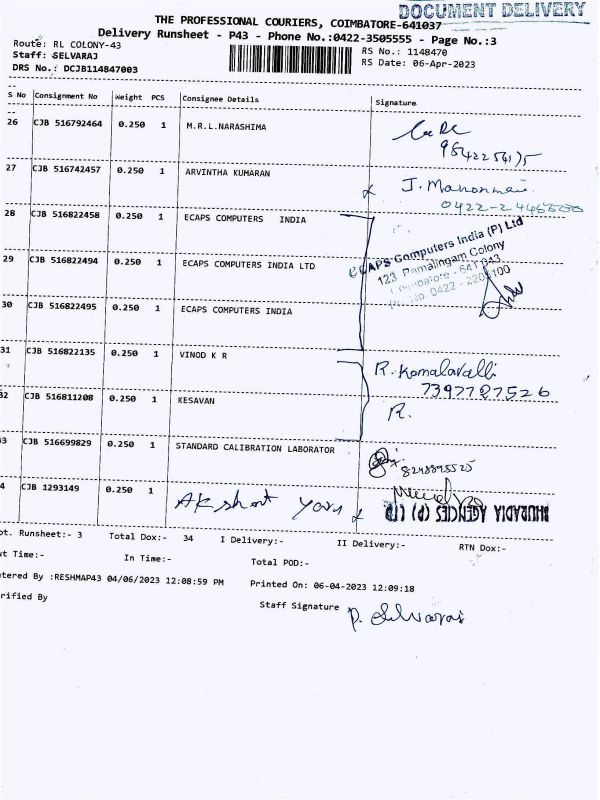 DOCUMENT DELIVERY
THE PROFESSIONAL COURIERS, COIMBATORE-641037
Delivery Runsheet - P43 - Phone No.:0422-3505555 - Page No.:3
Route: RL COLONY-43
RS No.: 1148470
Staff: SELVARAJ
RS Date: 06-Apr-2023
DRS No.: DCJB114847003
S No Consignment No Weight PCS Consignee Details Signature
26 CJB 516792464 0.250 1 M.R.L.NARASHIMA
27 CJB 516742457 0.250 1 ARVINTHA KUMARAN
28 CJB 516822458 0.250 1 ECAPS COMPUTERS INDIA
ECAPS Computers India (P) Ltd
123, Ramalingam Colony
29 CJB 516822494 0.250 1 ECAPS COMPUTERS INDIA LTD
30 CJB 516822495 0.250 1 ECAPS COMPUTERS INDIA
31 CJB 516822135 0.250 1 VINOD K R
R. Komalavalli
7397727526
32 CJB 516811208 0.250 1 KESAVAN
R.
33 CJB 516699829 0.250 1 STANDARD CALIBRATION LABORATOR
8248895525
34 CJB 1293149 0.250 1
AGENCIES (P) LTD
ot. Runsheet:- 3 Total Dox:- 34 I Delivery:- II Delivery:- RTN Dox:-
ut Time:- In Time:- Total POD:-
tered By :RESHMAP43 04/06/2023 12:08:59 PM Printed On: 06-04-2023 12:09:18
rified By
Staff Signature P. Selvaraj